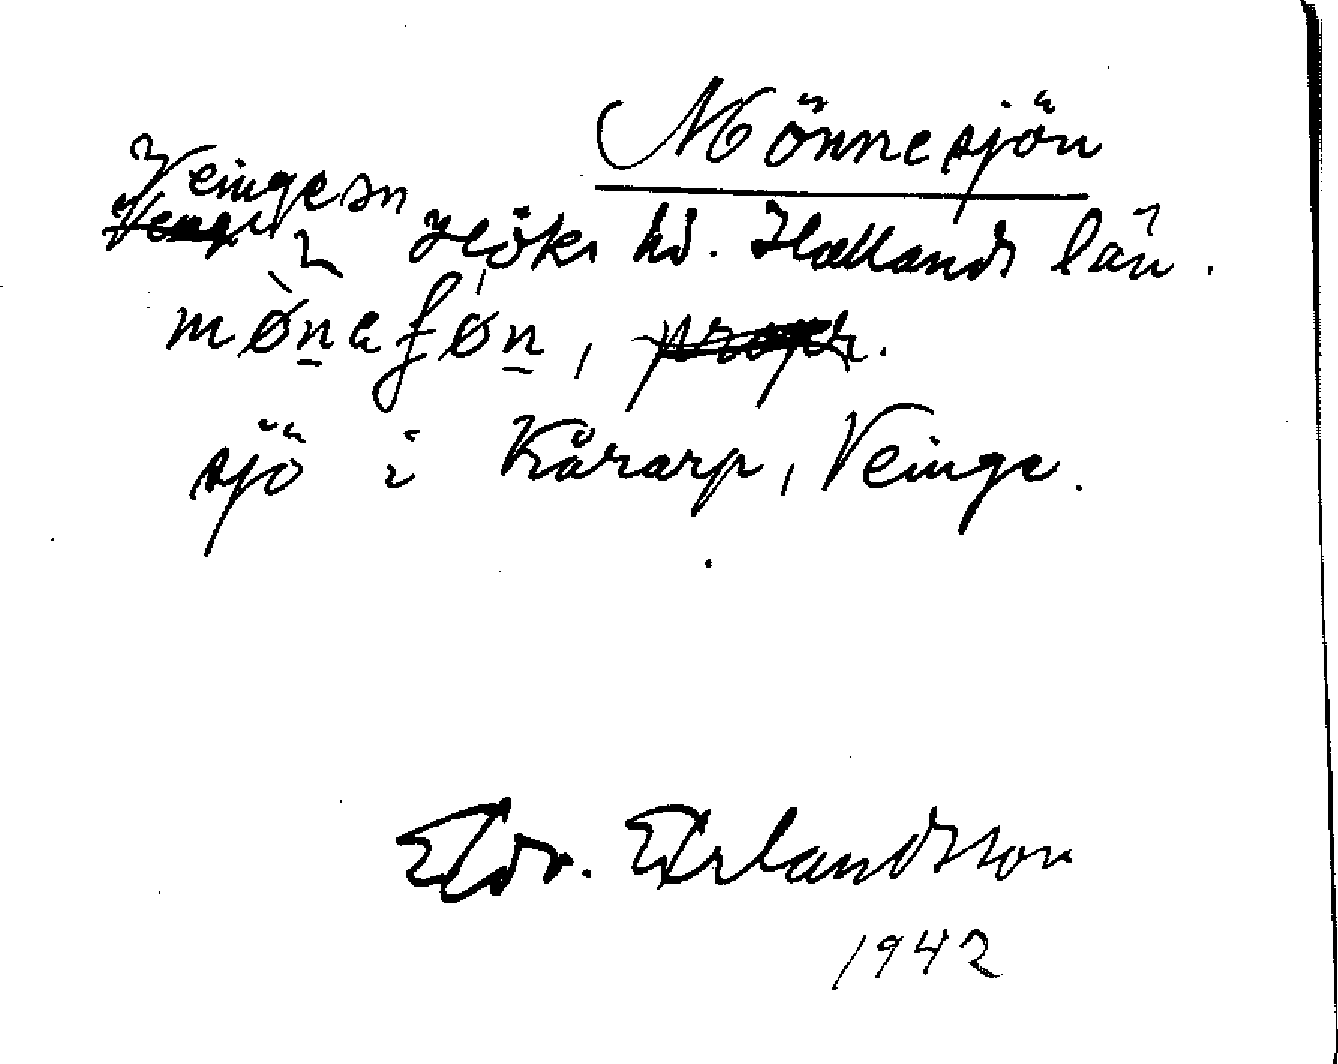 Mönnesjön
Veinge sn
Höks hd. Hallands län.
mø̀neføn,
sjö i Kårarp, Veinge.
Edv. Erlandsson
1942